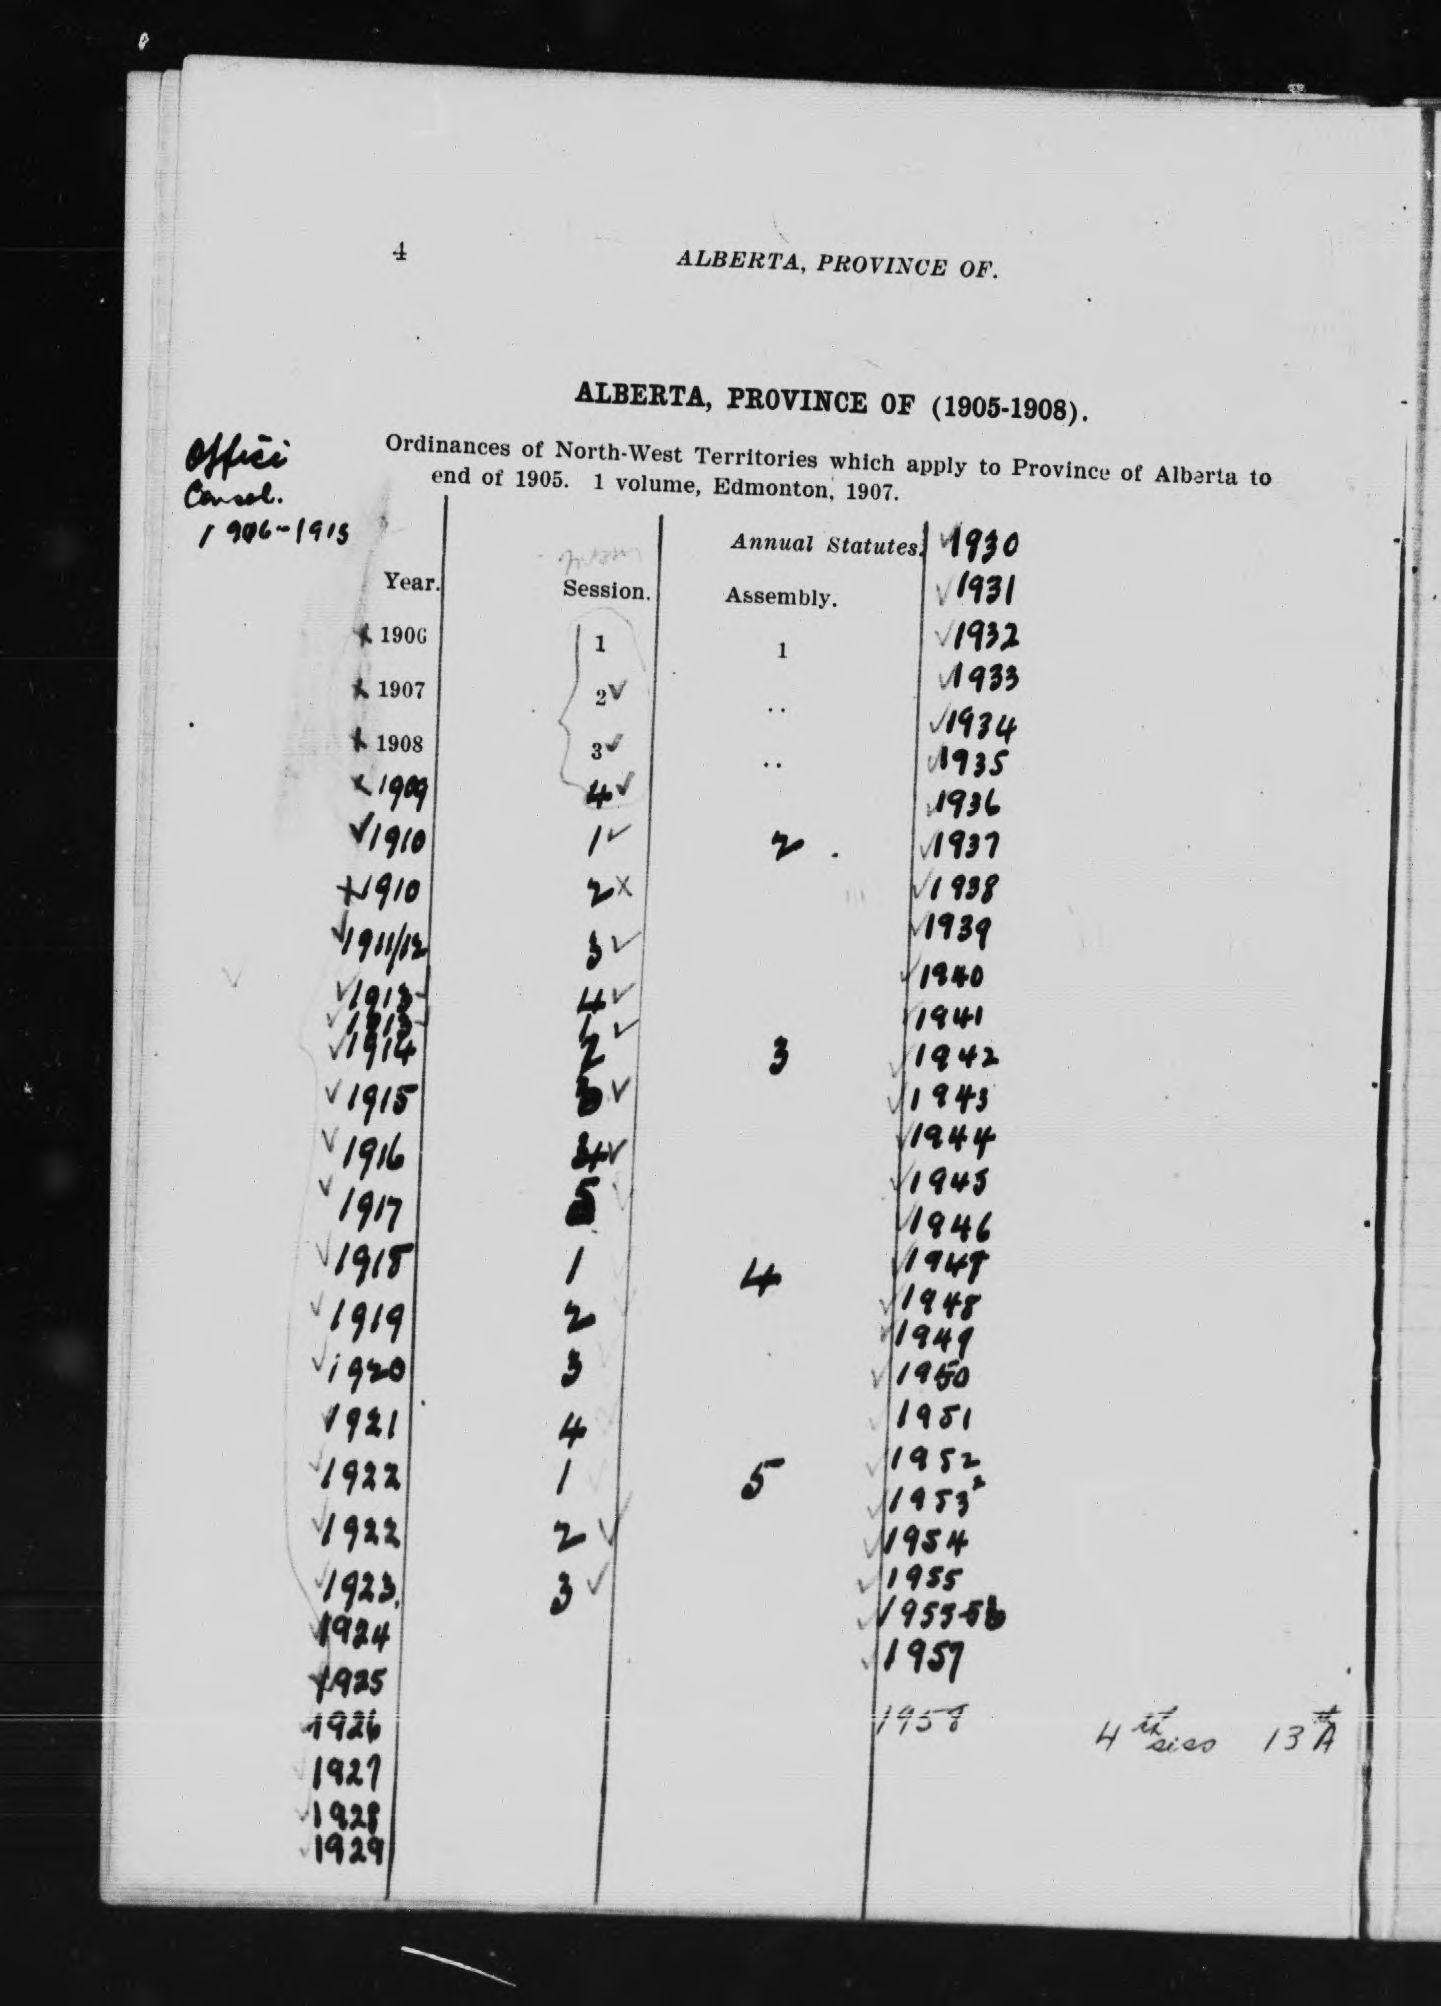 4 ALBERTA, PROVINCE OF.
ALBERTA, PROVINCE OF (1905-1908).
Ordinances of North-West Territories which apply to Province of Alberta to
end of 1905. 1 volume, Edmonton, 1907.
Consol.
1906-1915
Annual Statutes.
Year. Session. Assembly.
x 1906 1 1
x 1907 2 ✓ ..
x 1908 3 ✓ ..
x 1909 4 ✓
✓ 1910 1 ✓ 2
x 1910 2 x
✓ 1911/12 3 ✓
✓ 1913 4 ✓
✓ 1913 1 ✓
✓ 1914 2 3
✓ 1915 3 ✓
✓ 1916 4 ✓
✓ 1917 5 ✓
✓ 1918 1 4
✓ 1919 2
✓ 1920 3
✓ 1921 4
✓ 1922 1 5
✓ 1922 2 ✓
✓ 1923. 3 ✓
✓ 1924
✓ 1925
✓ 1926
✓ 1927
✓ 1928
✓ 1929
✓ 1930
✓ 1931
✓ 1932
✓ 1933
✓ 1934
✓ 1935
✓ 1936
✓ 1937
✓ 1938
✓ 1939
✓ 1940
✓ 1941
✓ 1942
✓ 1943
✓ 1944
✓ 1945
✓ 1946
✓ 1947
✓ 1948
✓ 1949
✓ 1950
✓ 1951
✓ 1952
✓ 1953²
✓ 1954
✓ 1955
✓ 1955-56
✓ 1957
1958 4th sess 13th A